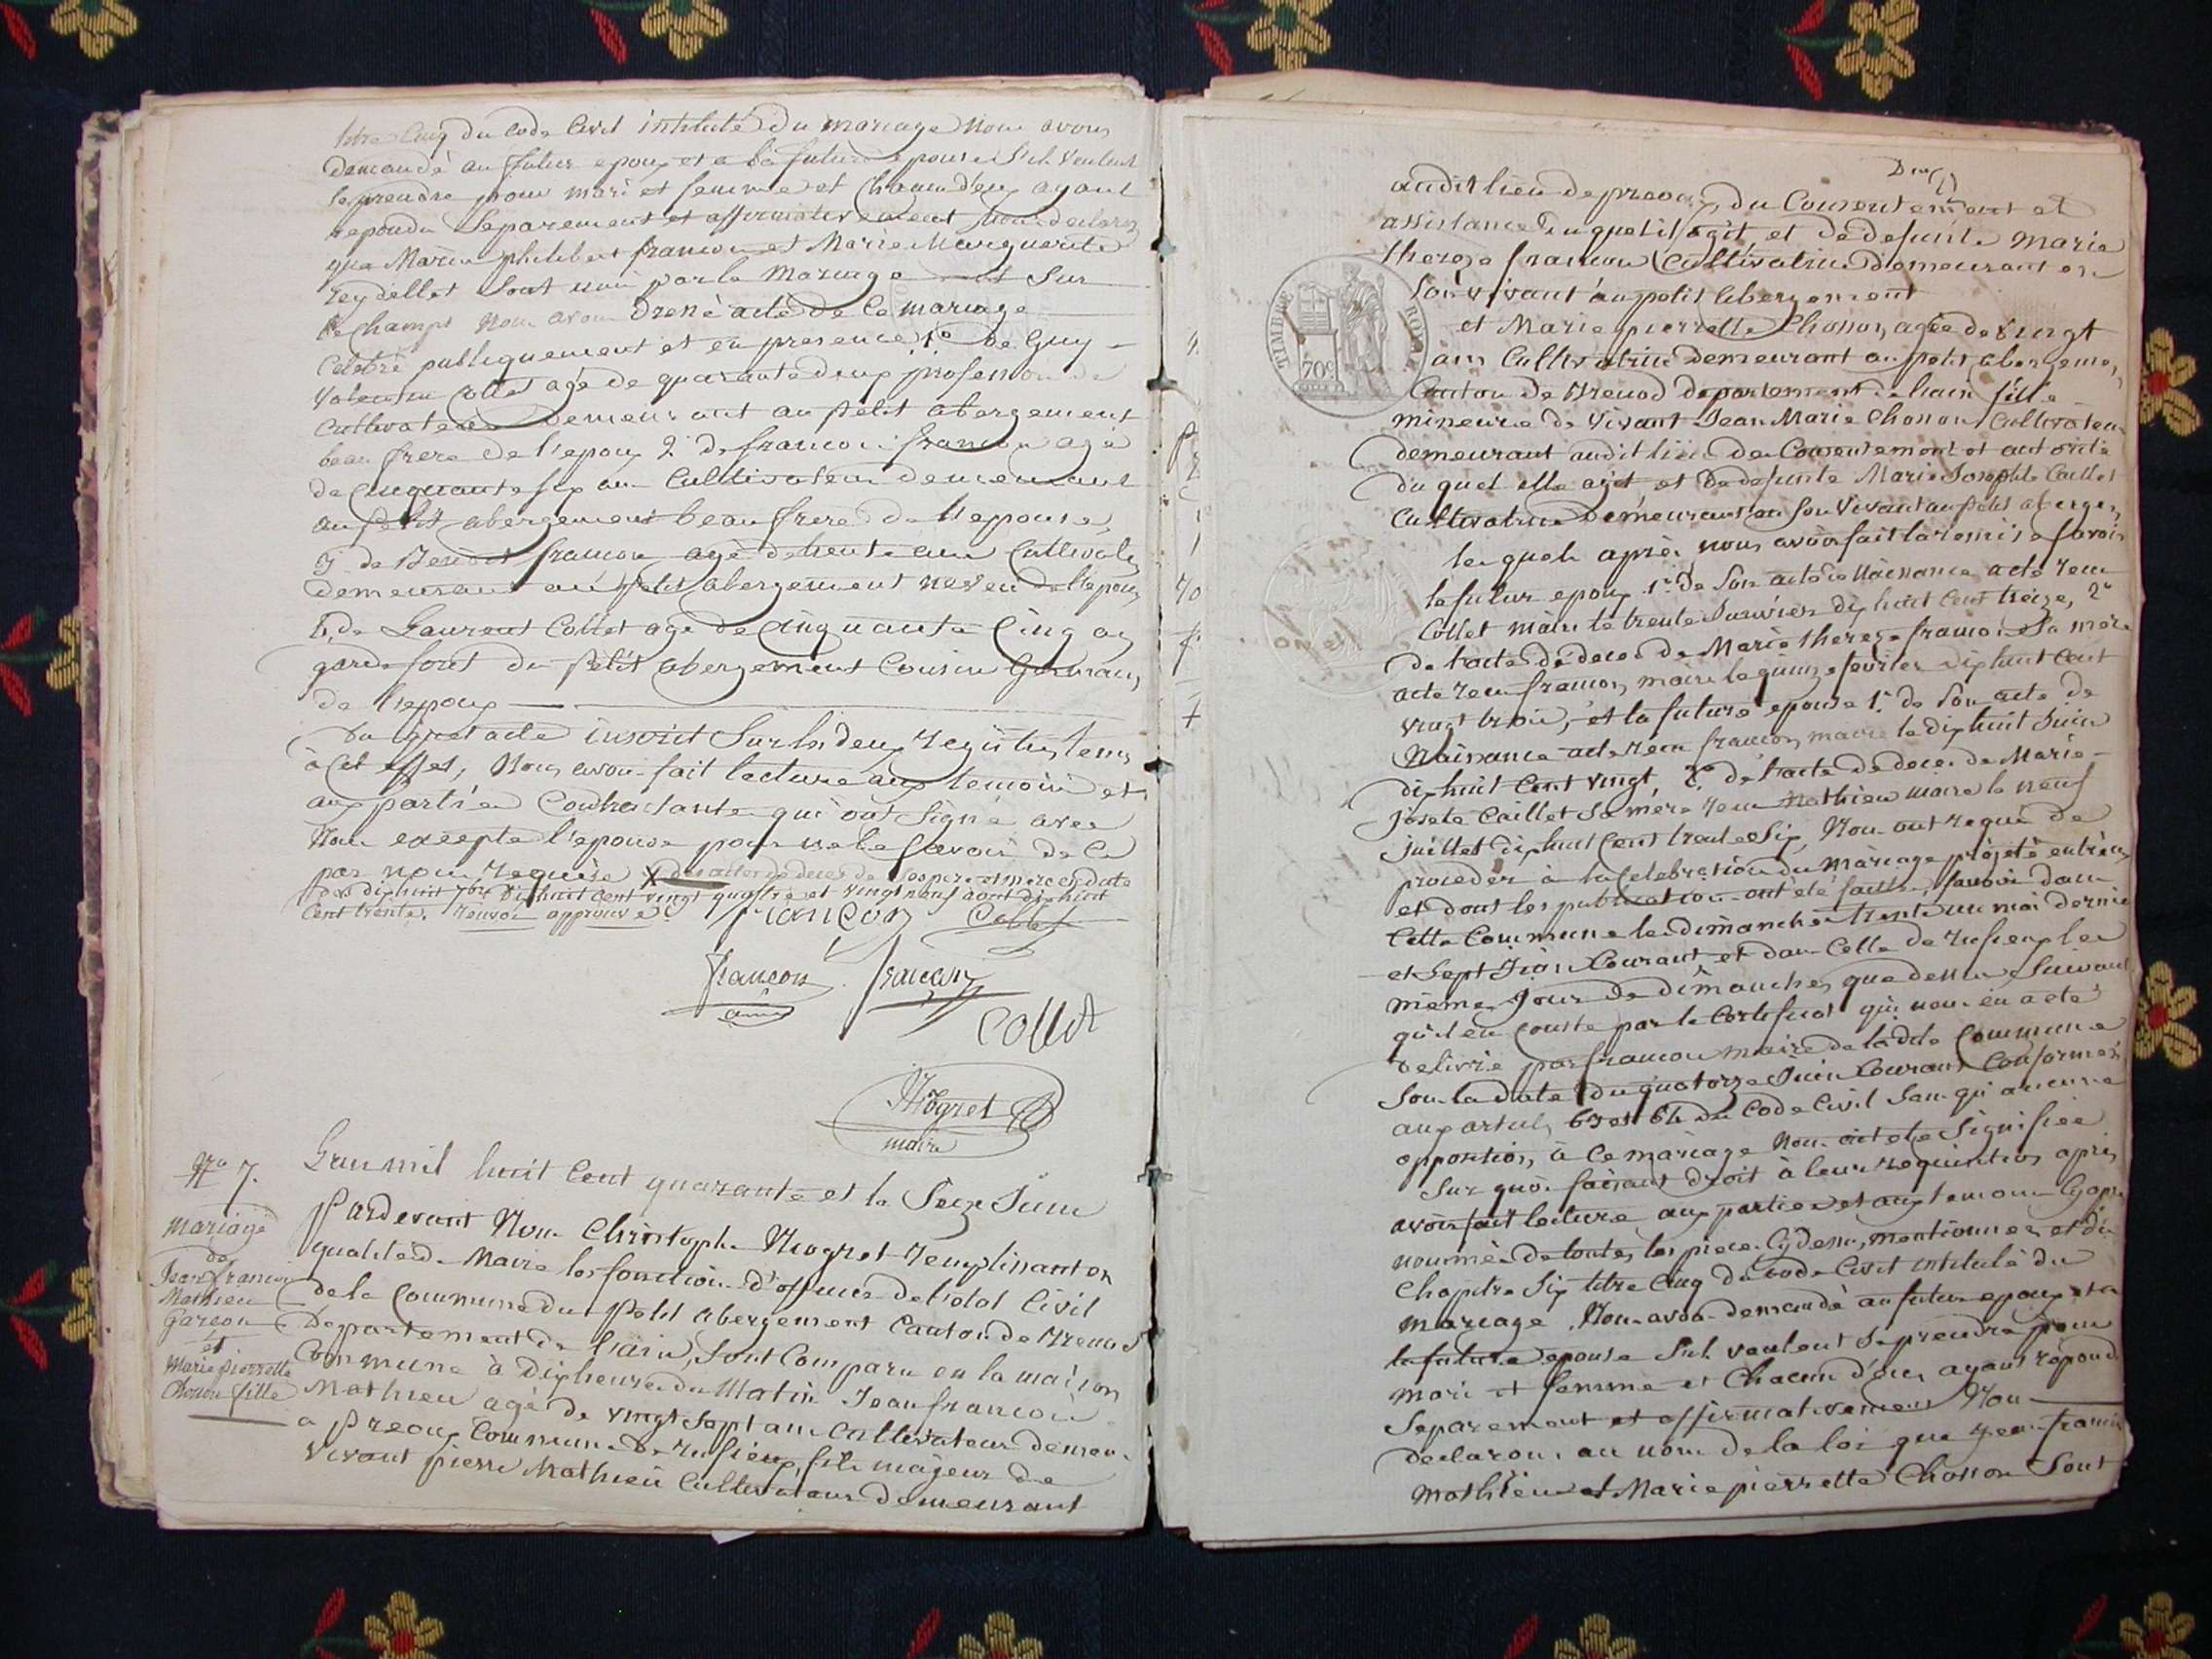 titre Cinq du Code Civil intitulé Du mariage Nous avons
Demandé au futur epoux et a la future epouse S'ils veulent
se prendre pour mari et femme et Chacun d'eux ayant
repondu Separement et affirmativement nous declarons
que Marin philibert francon et Marie Marguerite
reydellet Sont unis par le Mariage et Sur
le champs Nous avons Dressé acte de Ce mariage
Celebré publiquement et en presence 1o De Guy
Valentin Collet agé de quarante deux profession de
Cultivateur Demeurant au petit abergement
beau frere de l'epoux 2o De francois francon agé
de Cinquante six ans Cultivateur demeurant
au petit abergement beau frere de l'epouse
3o de Benoit francon agé de trente ans Cultivateur
demeurant au petit abergement neveu de l'epoux
4o de Laurent Collet agé de Cinquante Cinq ans
garde foret du petit abergement Cousin Germain
de l'epoux
Du quel acte inscrit Sur les deux registres tenus
à Cet effet, Nous avons fait lecture aux temoins et
aux parties Contractantes qui ont Signé avec
Nous excepté l'epouse pour ne le Savoir de Ce
par nous requise X des actes de deces de Ses pere et mere en date
des dix huit 7bre dix huit cent vingt quatre et vingt neuf aout dix huit
Cent trente. renvoi approuvé francon Collet
francon francon
Collet
Mogret
maire
No 7.
mariage
de
Jean francois
Mathieu
Garçon
et
Marie pierrette
Chosson fille
L'an mil huit Cent quarante et le Seize Juin
Pardevant Nous Christophe Mogret remplissant en
qualité de Maire les fonctions d'officier de l'etat Civil
de la Commune du petit abergement Canton de Brenod
Departement de l'ain, Sont Comparu en la maison
Commune à Dix heures du Matin Jean francois
Mathieu agé de vingt sept ans Cultivateur demeurant
a preoux Commune de rufieux, fils majeur de
Vivant pierre Mathieu Cultivateur demeurant
audit lieu de preoux, du Consentement et
assistance du quel il agit et de defunte Marie
thereze francon Cultivatrice Demeurant en
Son vivant au petit abergement
et Marie pierrette Chosson, agée de vingt
ans Cultivatrice demeurant au petit abergement,
Canton de Brenod departement de l'ain fille
mineure de Vivant Jean Marie Chosson Cultivateur
demeurant audit lieu du Consentement et autorité
du quel elle agit et de defunte Marie Josephte Caillet
Cultivatrice Demeurant en Son Vivant au petit abergement
TIMBRE ROYAL
70c
lesquels après nous avoir fait la remise savoir
le futur epoux 1o De Son acte de Naissance acte reçu
Collet maire le trente Janvier dix huit Cent treize, 2o
de l'acte de deces de Marie thereze francon Sa mere
acte reçu francon, maire le quinze fevrier dix huit Cent
vingt trois, et la future epouse 1o de Son acte de
Naissance acte reçu francon, maire le dix huit Juin
dix huit Cent vingt, 2o de l'acte de deces de Marie
Josete Caillet Sa mere reçu Mathieu maire le neuf
juillet dix huit Cent trente Six, Nous ont requis de
proceder à la Celebration du mariage projeté entr'eux
et dont les publications ont eté faites, savoir dans
Cette Commune les dimanches trente un mai dernier
et Sept Juin Courant et dans Celle de rufieux les
mêmes Jours de dimanches que dessus, Suivant
qu'il en Conste par le Certificat qui nous en a eté
delivré par francon maire de la dite Commune
Sous la date du quatorze Juin Courant Conformé
aux articles 63 et 64 du Code Civil Sans qu'aucune
opposition, à Ce mariage Nous ait eté Signifiée
Sur quoi faisant droit à leur requisition après
avoir fait lecture aux parties et aux temoins Cy après
nommés de toutes les pieces Cy dessus, mentionnées et du
Chapitre Six titre Cinq du Code Civil intitulé du
mariage. Nous avons demandé au futur epoux et a
la future epouse S'ils veulent Se prendre pour
mari et femme et Chacun d'eux ayant repondu
Separement et affirmativement Nous
declarons au nom de la loi que Jean francois
Mathieu et Marie pierrette Chosson Sont